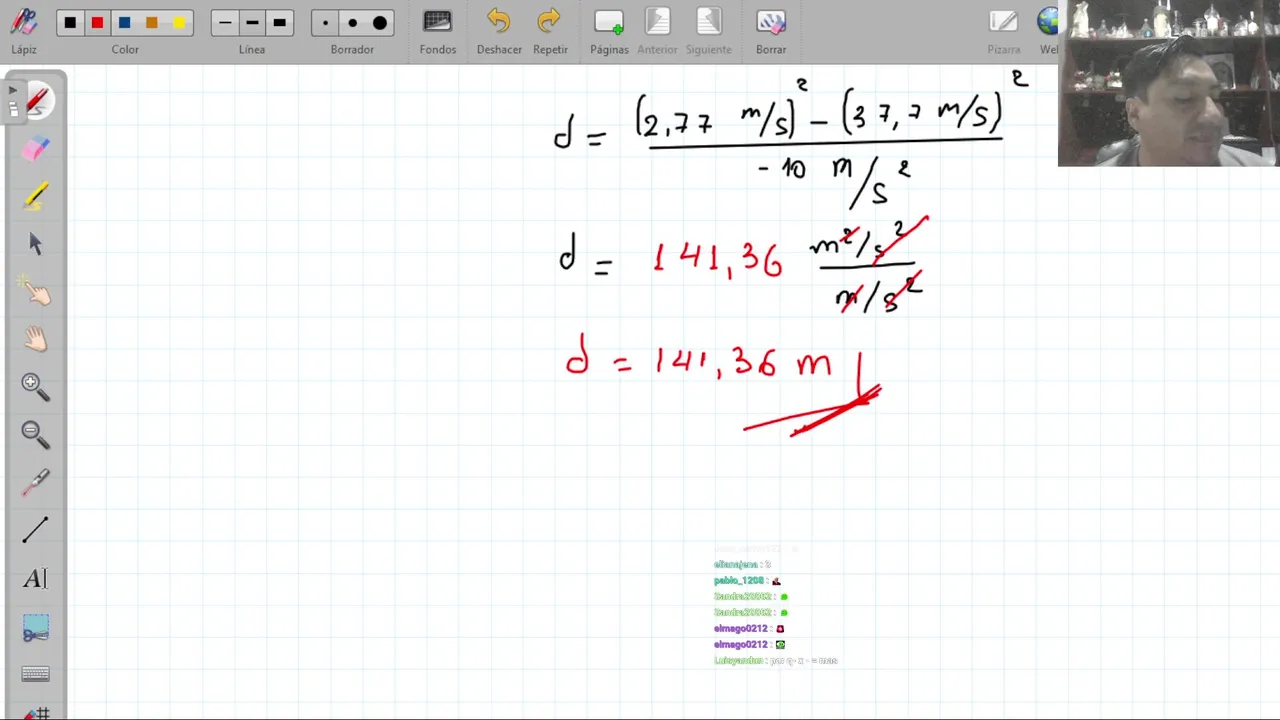 Lápiz Color Línea Borrador Fondos Deshacer Repetir Páginas Anterior Siguiente Borrar Pizarra
d = (2,77 m/s)² − (37,7 m/s)²
- 10 m/s²
d = 141,36 m²/s²
m/s²
d = 141,36 m
A
elianajena :
pablo_1208 :
Sandra20012 :
Sandra20012 :
elmago0212 :
elmago0212 :
: por q - x - = mas